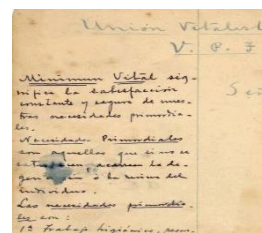 Unión Vitalist
V. P. F
Minimun Vital sig-
nifica la satisfacción
constante y segura de nues-
tras necesidades primordia-
les.
Necesidades Primordiales
son aquellas que si no se
satisfacen acarrean la de-
generación o la ruina del
individuo.
Las necesidades primordia-
les son:
1ª Trabajo higiénico,
Señ